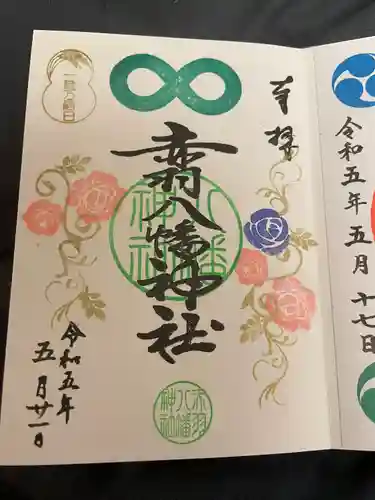 奉拝
赤羽八幡神社
八幡
神社
赤羽
八幡
神社
一粒万倍日
令和五年
五月廿一日
令和五年五月十七日